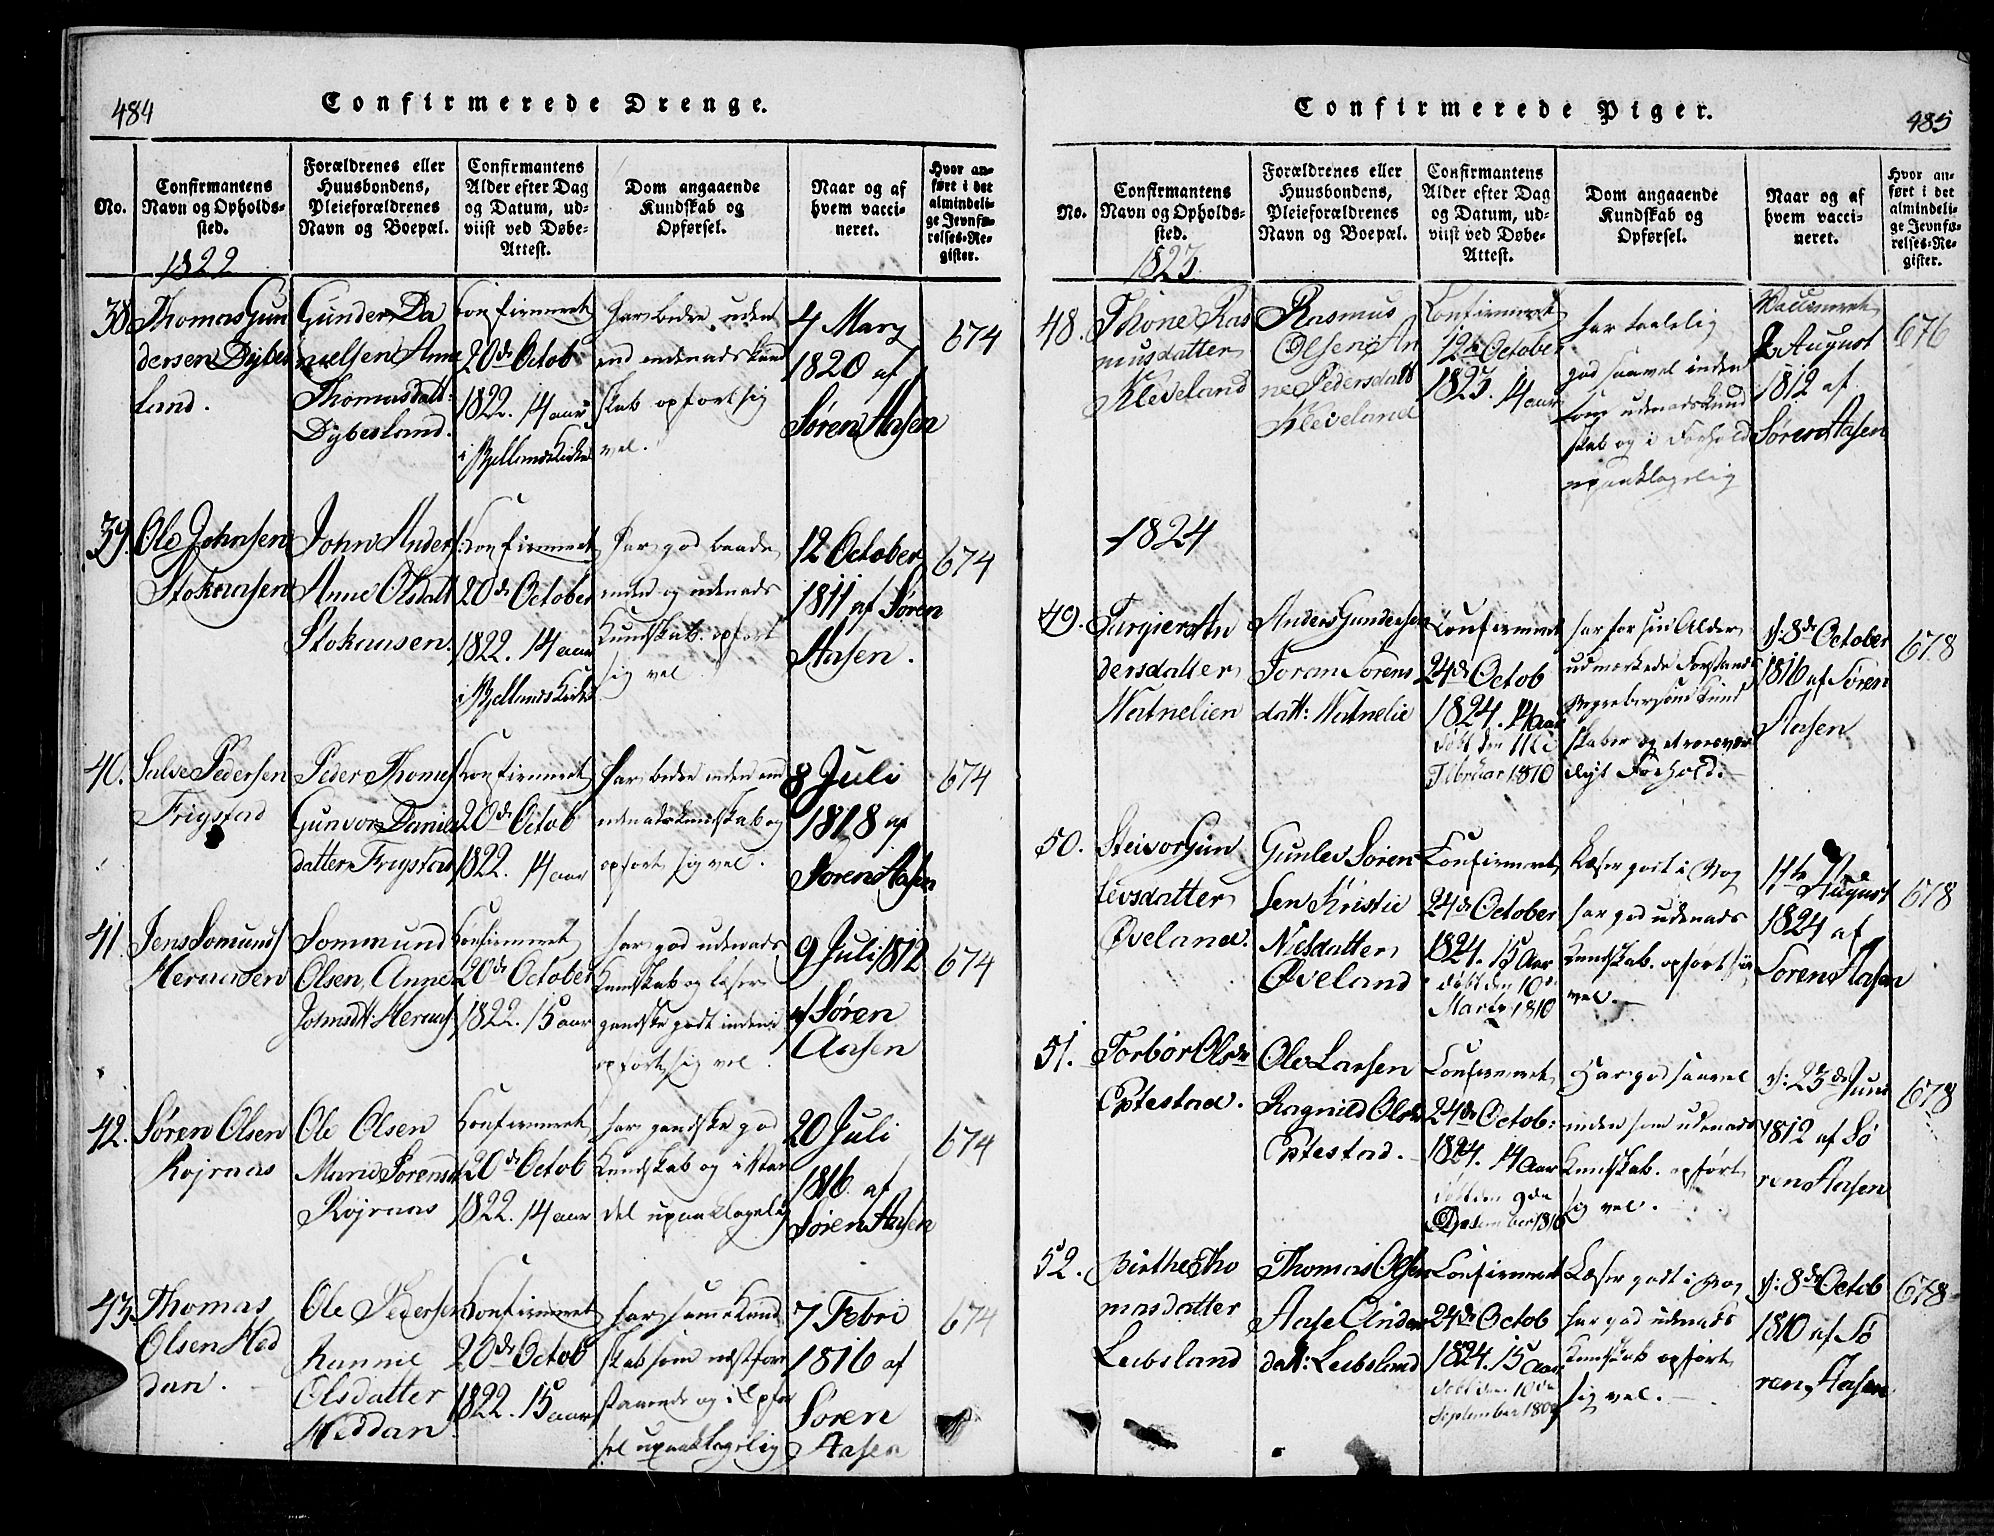 484
Confirmerede Drenge.
No.
Confirmantens
Navn og Opholds-
sted.
Forældrenes eller
Huusbondens,
Pleieforældrenes
Navn og Boepæl.
Confirmantens
Alder efter Dag
og Datum, ud-
viist ved Døbe-
Attest.
Dom angaaende
Kundskab og
Opførsel.
Naar og af
hvem vacci-
neret.
Hvor an-
ført i det
almindeli-
ge Jevnfø-
relses-Re-
gister.
1822
38.
Thomas Gun
dersen Dybes
land.
Gunder Da
nielsen Anne
Thomasdatt:
Dybesland.
Confirmeret
20de Octob
1822. 14 aar
i Bjellands Kirke
har bedre uden
end indenads kund
skab opført sig
vel.
4 Marz
1820 af
Søren Aasen
674
39.
Ole Johnsen
Stokaasen
John Anders:
Anne Olsdatt
Stokaasen.
Confirmeret
20de October
1822. 14 aar
i Bjellands Kirke
har god baade
inden og udenads
Kundskab. opført
sig vel.
12 October
1811 af Søren
Aasen.
674
40.
Salve Pedersen
Frigstad
Peder Thomes
Gunvor Daniels
datter Frigstad
Confirmeret
20de Octob
1822. 14 aar
har bedre inden end
udenadskundskab og
opført sig vel.
8 Juli
1818 af
Søren Aasen
674
41.
Jens Somunds
Heraasen
Sommund
Olsen, Anne
Johnsdt: Heraas
Confirmeret
20de October
1822. 15 aar
har god udenads
Kundskab og læser
gandske godt indeni
opført sig vel
9 Juli 1812
af Søren
Aasen
674
42.
Søren Olsen
Røjraas
Ole Olsen
Marie Sørensd
Røjraas
Confirmeret
20de Octob
1822. 14 aar
har gandske god
Kundskab og i
del upaaklagelig
20 Juli
1816 af
Søren Aasen
674
43.
Thomas
Olsen Hed
dan.
Ole Pedersen
Rannie
Olsdatter
Heddan
Confirmeret
20de Octob
1822. 15 aar
har samme Kund
skab som næstfore
staaende og i Opfør
sel upaaklagelig
7 Febri
1816 af
Søren
Aasen
674
Confirmerede Piger.
485
No.
Confirmantens
Navn og Opholds-
sted.
Forældrenes eller
Huusbondens,
Pleieforældrenes
Navn og Boepæl.
Confirmantens
Alder efter Dag
og Datum, ud-
viist ved Døbe-
Attest.
Dom angaaende
Kundskab og
Opførsel.
Naar og af
hvem vacci-
neret.
Hvor an-
ført i det
almindeli-
ge Jevnfø-
relses-Re-
gister.
1823
48.
Thone Ras
musdatter
Kleveland
Rasmus
Olsen An
ne Pedersdatt
Kleveland
Confirmeret
12te October
1823. 14 aar
har taalelig
god saavel inden
som udenadskund
skab og i Forhold
upaaklagelig
Vaccineret
2 August
1812 af
Søren Aasen
676
1824
49.
Targier An
dersdatter
Natnelien
Anders Gundersen
Joran Sørens
datt: Natnelie
Confirmeret
24de Octob
1824. 14 aar
født den 11te
Februar 1810
har for sin Alder
udmærkede Forstands
Begreber, sund Kund
skaber og et
digt Forhold.
d: 8de October
1816 af Søren
Aasen
678
50.
Steivor Gun
levsdatter
Øveland.
Gunlev Søren
sen Kristie
Nielsdatter
Øveland
Confirmeret
24de October
1824. 15 Aar
født den 10de
Marts 1810
Læser godt i Bog
har god udenads
Kundskab. opført sig
vel.
11te August
1824 af
Søren Aasen
678
51.
Torbør Olsdr
Eptestad.
Ole Larsen
Ragnild Olsdr
Eptestad.
Confirmeret
24de Octob:
1824. 14 Aar
født den 9de
December 1810
Har god saavel
inden som udenads
Kundskab. opført
sig vel.
d: 23de Juni
1812 af Sø
ren Aasen
678
52.
Birthe Tho
masdatter
Leibsland
Thomas Olsen
Aase Anders
datt: Leibsland
Confirmeret
24de Octob
1824. 15 Aar
født den 10de
September 1809
Læser godt i Bog
har god udenads
Kundskab opført
sig vel.
d: 8de Octob
1810 af Sø
ren Aasen
678